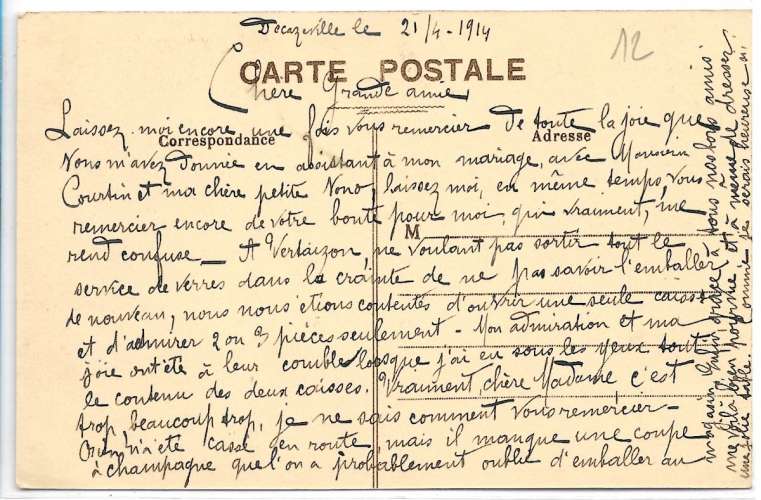 Decazeville le 21/4-1914
12
CARTE POSTALE
Chère Grande amie,
Correspondance
Adresse
M
Laissez-moi encore une fois vous remercier de toute la joie que
vous m'avez donnée en assistant à mon mariage, avec Monsieur
Courtin et ma chère petite Nono, laissez moi, en même temps, vous
remercier encore de votre bonté pour moi, qui vraiment, me
rend confuse_ A Vertaizon, ne voulant pas sortir tout le
service de verres dans la crainte de ne pas savoir l'emballer
de nouveau, nous nous étions contentés d'ouvrir une seule caisse
et d'admirer 2 ou 3 pièces seulement - Mon admiration et ma
joie ont été à leur comble lorsque j'ai eu sous les yeux tout
le contenu des deux caisses. Vraiment, chère Madame c'est
trop, beaucoup trop, je ne sais comment vous remercier -
Rien n'a été cassé en route, mais il manque une coupe
à champagne que l'on a probablement oublié d'emballer au
magasin. Enfin, grâce à tous nos bons amis
me voilà bien pourvue et à même de dresser
une jolie table. Comme je serais heureuse si